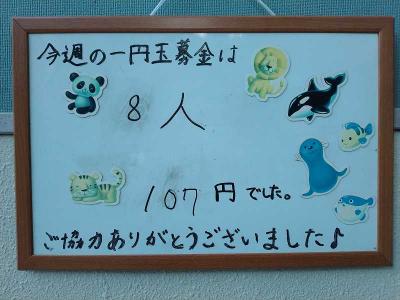 今週の一円玉募金は
8人
107円でした。
ご協力ありがとうございました♪